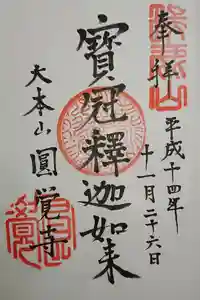 奉拝
平成十四年
十一月二十六日
寶冠釋迦如来
大本山圓覚寺